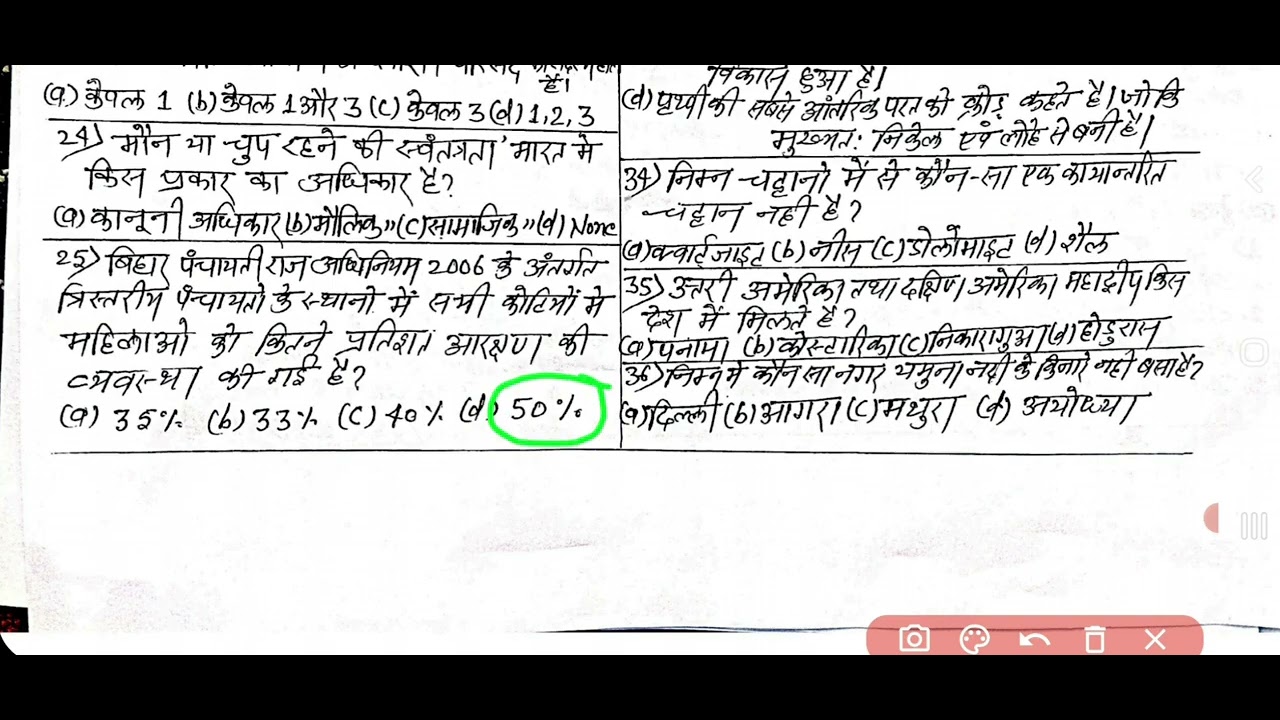 है।
(a) केवल 1 (b) केवल 1 और 3 (c) केवल 3 (d) 1, 2, 3
24) 'मौन या चुप रहने की स्वंतत्रता' भारत मे
किस प्रकार का अधिकार है?
(a) कानूनी अधिकार (b) मौलिक" (c) सामाजिक" (d) None
25) बिहार पंचायती राज अधिनियम 2006 के अंतर्गत
त्रिस्तरीय पंचायतो के स्थानो में सभी कोटियों मे
महिलाओ को कितने प्रतिशत आरक्षण की
व्यवस्था की गई है?
(a) 35% (b) 33% (c) 40% (d) 50%
विकास हुआ है।
(d) पृथ्वी की सबसे आंतरिक परत को क्रोड़ कहते है। जो कि
मुख्यत: निकेल एवं लोहे से बनी है।
34) निम्न चट्टानो में से कौन-सा एक कायान्तरित
चट्टान नही है?
(a) क्वार्ट्जाइट (b) नीस (c) डोलोमाइट (d) शैल
35) उत्तरी अमेरिका तथा दक्षिण अमेरिका महाद्वीप किस
देश में मिलते है?
(a) पनामा (b) कोस्टारिका (c) निकारागुआ (d) होंडुरास
36) निम्न मे कौन सा नगर यमुना नदी के किनारे नही बसा है?
(a) दिल्ली (b) आगरा (c) मथुरा (d) अयोध्या